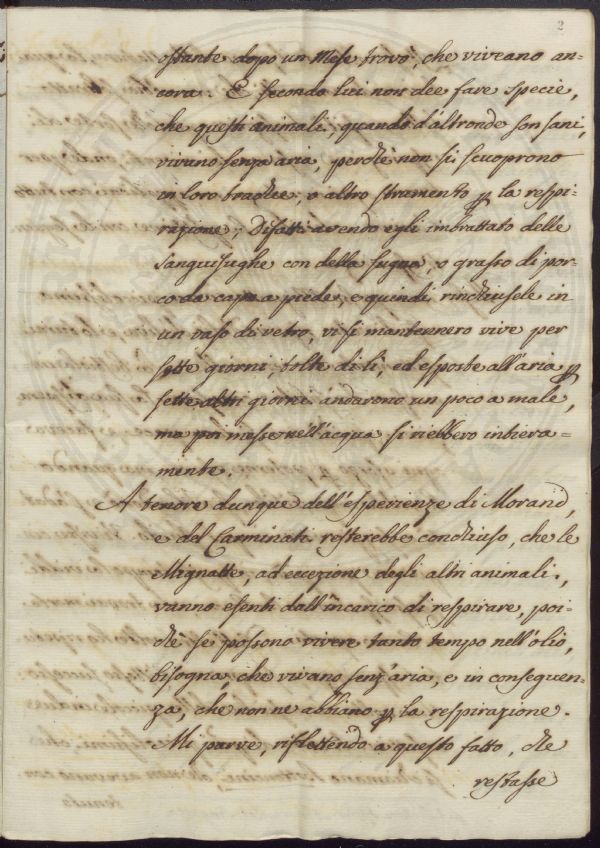 2
ostante dopo un Mese trovò, che viveano an=
cora. E secondo lui non dee fare specie,
che questi animali, quando d'altronde son sani,
vivano senza aria, perchè non si scuoprono
in loro trachee, o altro strumento p la respi=
razione; Difatti avendo egli imbrattato delle
Sanguisughe con della sugna, o grasso di por=
co da capo a piede, e quindi rinchiusele in
un vaso di vetro, vi si mantennero vive per
sette giorni; tolte di lì, ed esposte all'aria p
sette altri giorni andarono un poco a male,
ma poi messe nell'acqua si riebbero intiera=
mente.
A tenore dunque dell'esperienze di Morand,
e del Carminati resterebbe conchiuso, che le
Mignatte, ad eccezione degli altri animali,
vanno esenti dall'incarico di respirare, poi=
chè se possono vivere tanto tempo nell'olio,
bisogna, che vivano senz'aria, e in conseguen=
za, che non ne abbiano p la respirazione.
Mi parve, riflettendo a questo fatto, che
restasse